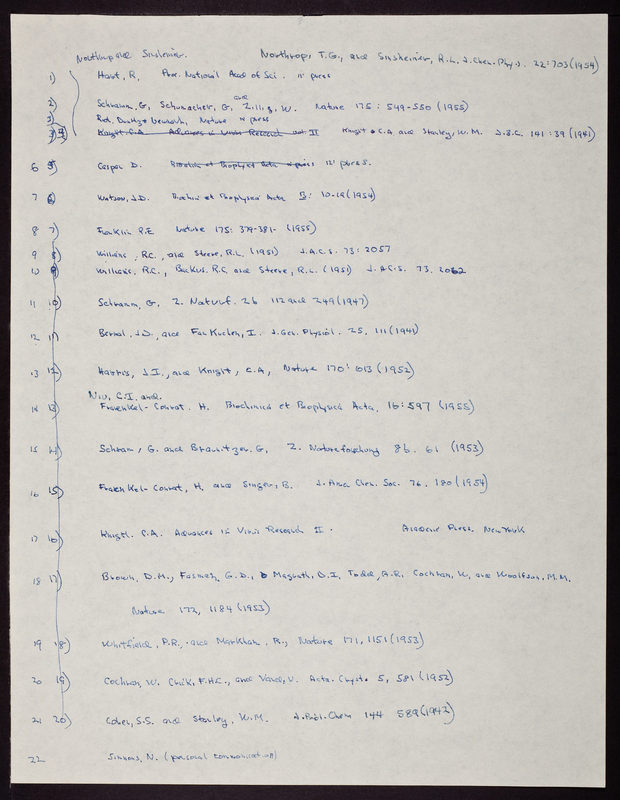 Northrop and Sinsheimer. Northrop, T.G., and Sinsheimer, R.L. J. Chem. Phys. 22:703 (1954)
1) Hart, R, Proc. National Acad of Sci. in press
and
2) Schramm, G, Schumacher, G, Zillig, W. Nature 175: 549-550 (1955)
3) Nature in press
Knight C.A. Advances in Virus Research II Knight C.A. and Stanley, W.M. J.B.C. 141:39 (1941)
6 Caspar D. Biochim et Biophys Acta in press in press.
7 Watson, J.D. Biochim et Biophysica Acta 13: 10-19 (1954)
8 7) Franklin R.E Nature 175: 379-381- (1955)
9 8) Williams, R.C., and Steere, R.L. (1951) J.A.C.S. 73: 2057
10 9) Williams, R.C., Backus, R.C. and Steere, R.L. (1951) J.A.C.S. 73. 2062
11 10) Schramm, G. Z. Naturf. 2b 112 and 249 (1947)
12 11) Bernal, J.D., and Fankuchen, I. J. Gen. Physiol. 25, 111 (1941)
13 12) Harris, J.I., and Knight, C.A, Nature 170: 613 (1952)
Niu, C.I. and
14 13) Fraenkel-Conrat. H. Biochimica et Biophysica Acta, 16:597 (1955)
15 14) Schram, G. and Braunitzer. G, Z. Natureforschung 8b. 61 (1953)
16 15) Fraenkel-Conrat, H. and Singer, B. J. Amer Chem. Soc. 76, 180 (1954)
17 16) Knight. C.A. Advances in Virus Research II. Academic Press. New York
18 17) Brown, D.M., Fasman, G.D., Magrath, D.I, Todd, A.R, Cochran, W, and Woolfson, M.M.
Nature 172, 1184 (1953)
19 18) Whitfield, P.R., and Markham, R., Nature 171, 1151 (1953)
20 19) Cochran, W. Crick, F.H.C., and Vand, V. Acta. Cryst. 5, 581 (1952)
21 20) Cohen, S.S. and Stanley, W.M. J. Biol. Chem 144 589 (1942)
22 Simmons, N. (personal communication)